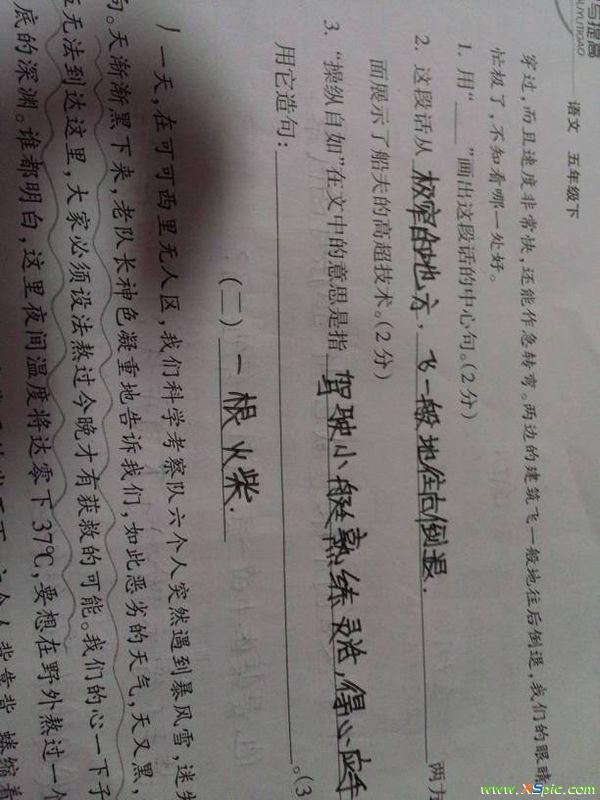 与提高
UYUTIGAO
语文 五年级下
穿过，而且速度非常快，还能作急转弯。两边的建筑飞一般地往后倒退，我们的眼睛
忙极了，不知看哪一处好。
1. 用“____”画出这段话的中心句。(2分)
2. 这段话从 极窄的地方，飞一般地往后倒退. 两方
面展示了船夫的高超技术。(2分)
3. “操纵自如”在文中的意思是指 驾驶小艇熟练灵活，得心应手
用它造句：____。(3
(二) 一根火柴.
一天，在可可西里无人区，我们科学考察队六个人突然遇到暴风雪，迷失
句。天渐渐黑下来，老队长神色凝重地告诉我们，如此恶劣的天气，天又黑，
无法到达这里，大家必须设法熬过今晚才有获救的可能。我们的心一下子
底的深渊。谁都明白，这里夜间温度将达零下37℃，要想在野外熬过一个
个人背靠背，蜷缩着
www.XSpic.com